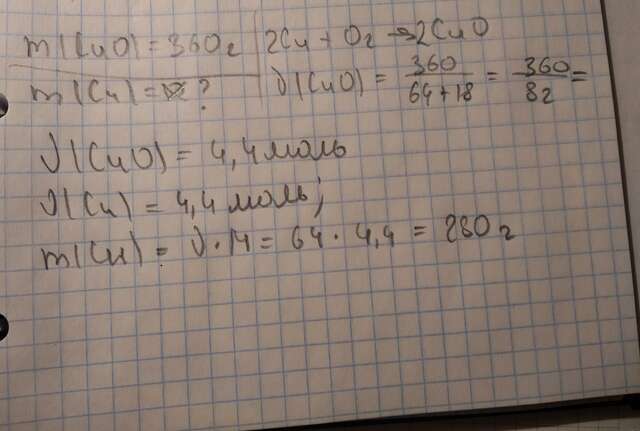 m(CuO) = 360г 2Cu + O₂ → 2CuO
m(Cu) = ? ν(CuO) = 360/64+18 = 360/82 =
ν(CuO) = 4,4 моль
ν(Cu) = 4,4 моль;
m(Cu) = ν · M = 64 · 4,4 = 280г